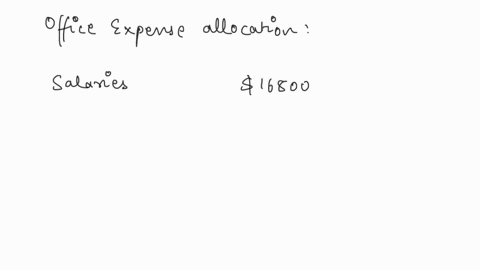 Office Expense allocation:
Salaries $16800